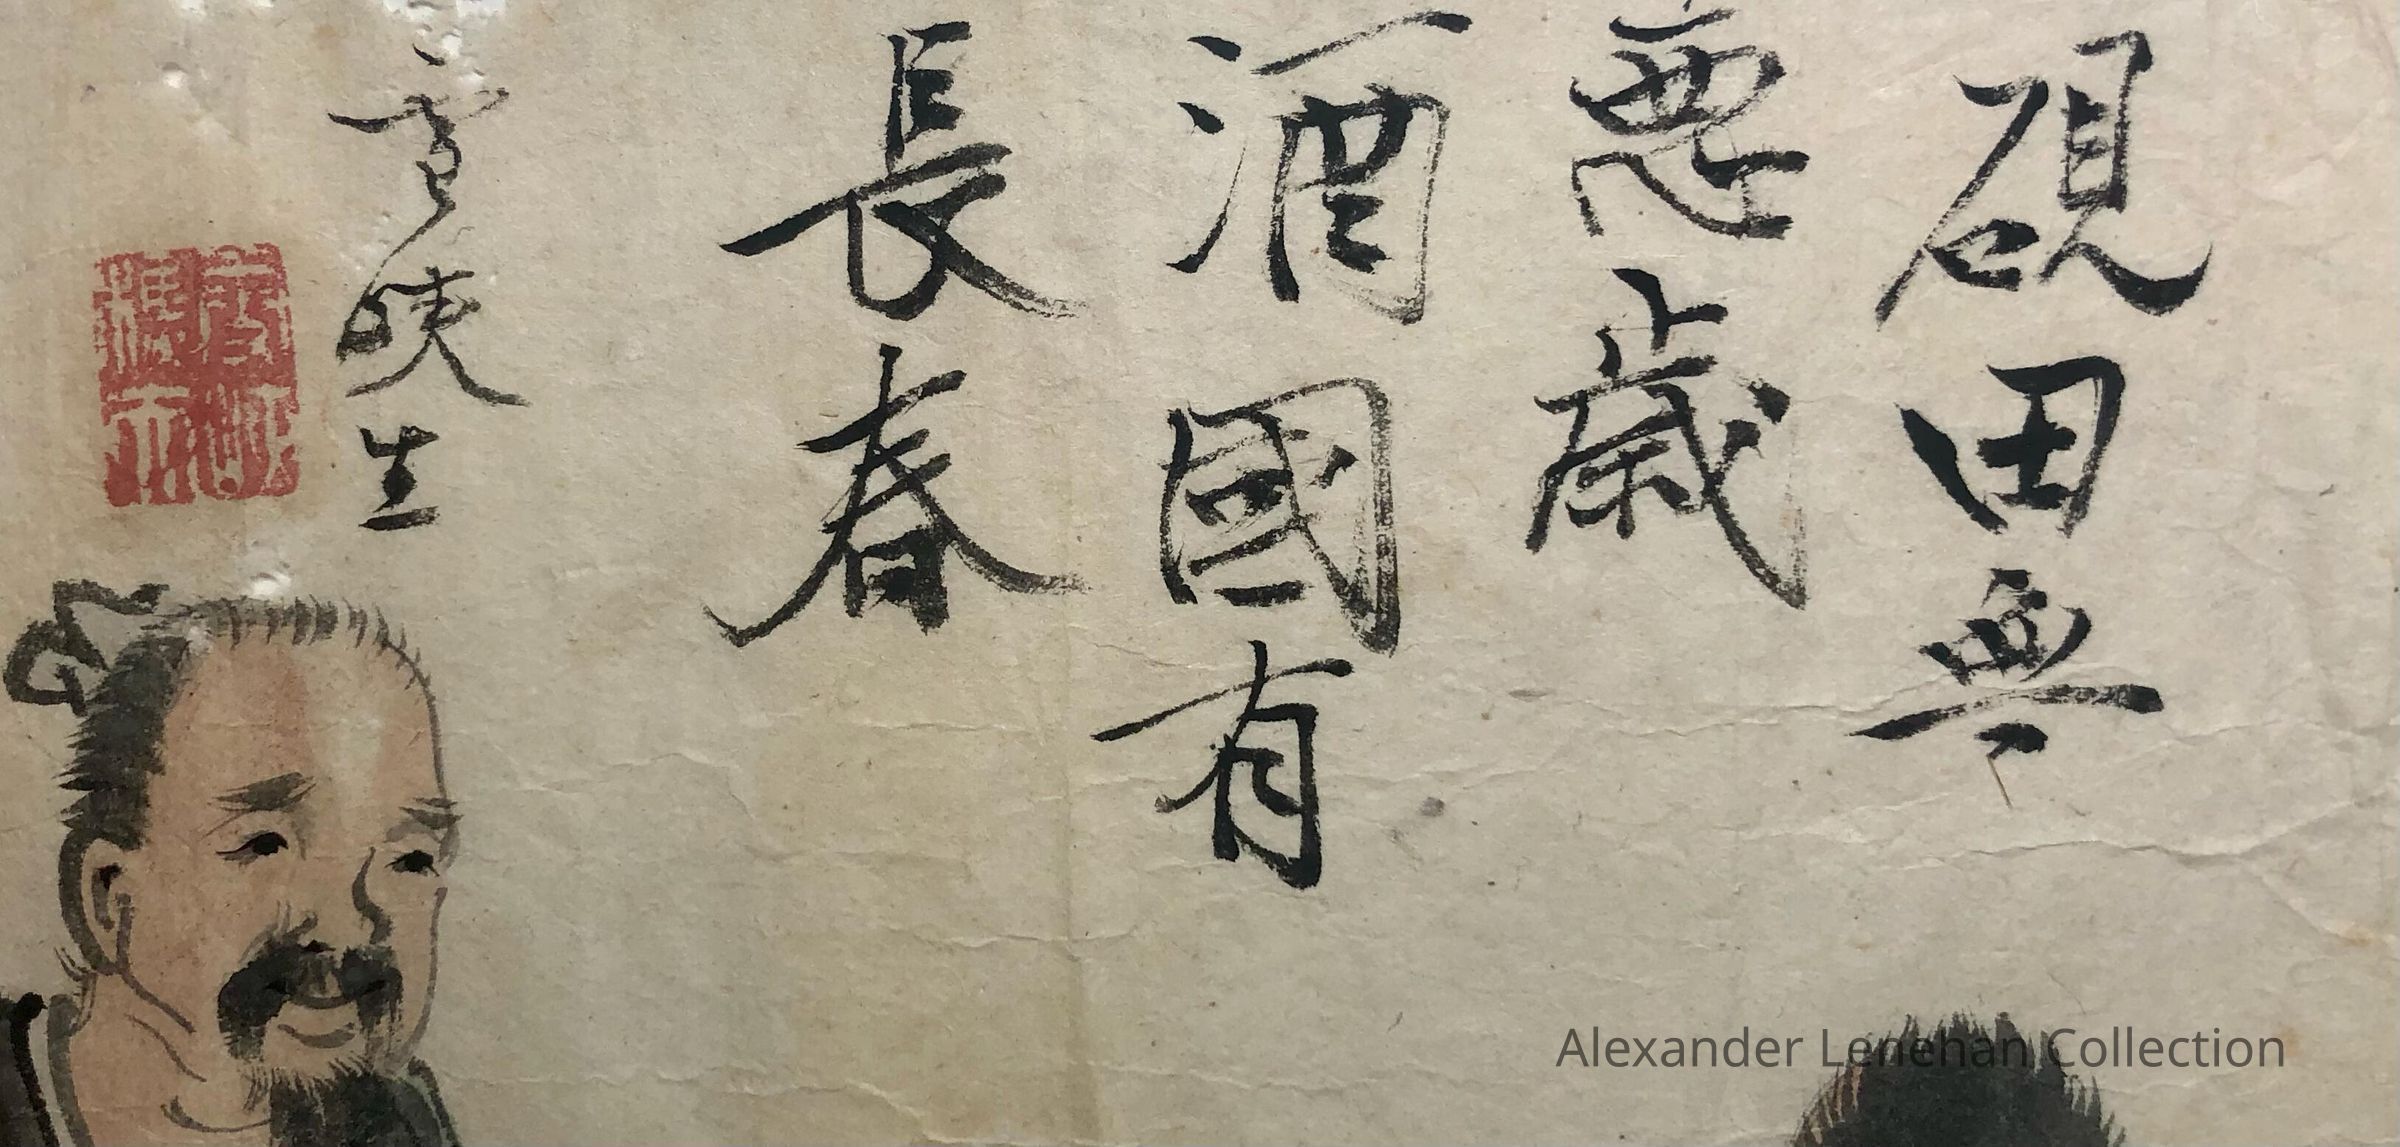 硯田無
悪歳
酒國有
長春
雪峽生
Alexander Lenehan Collection